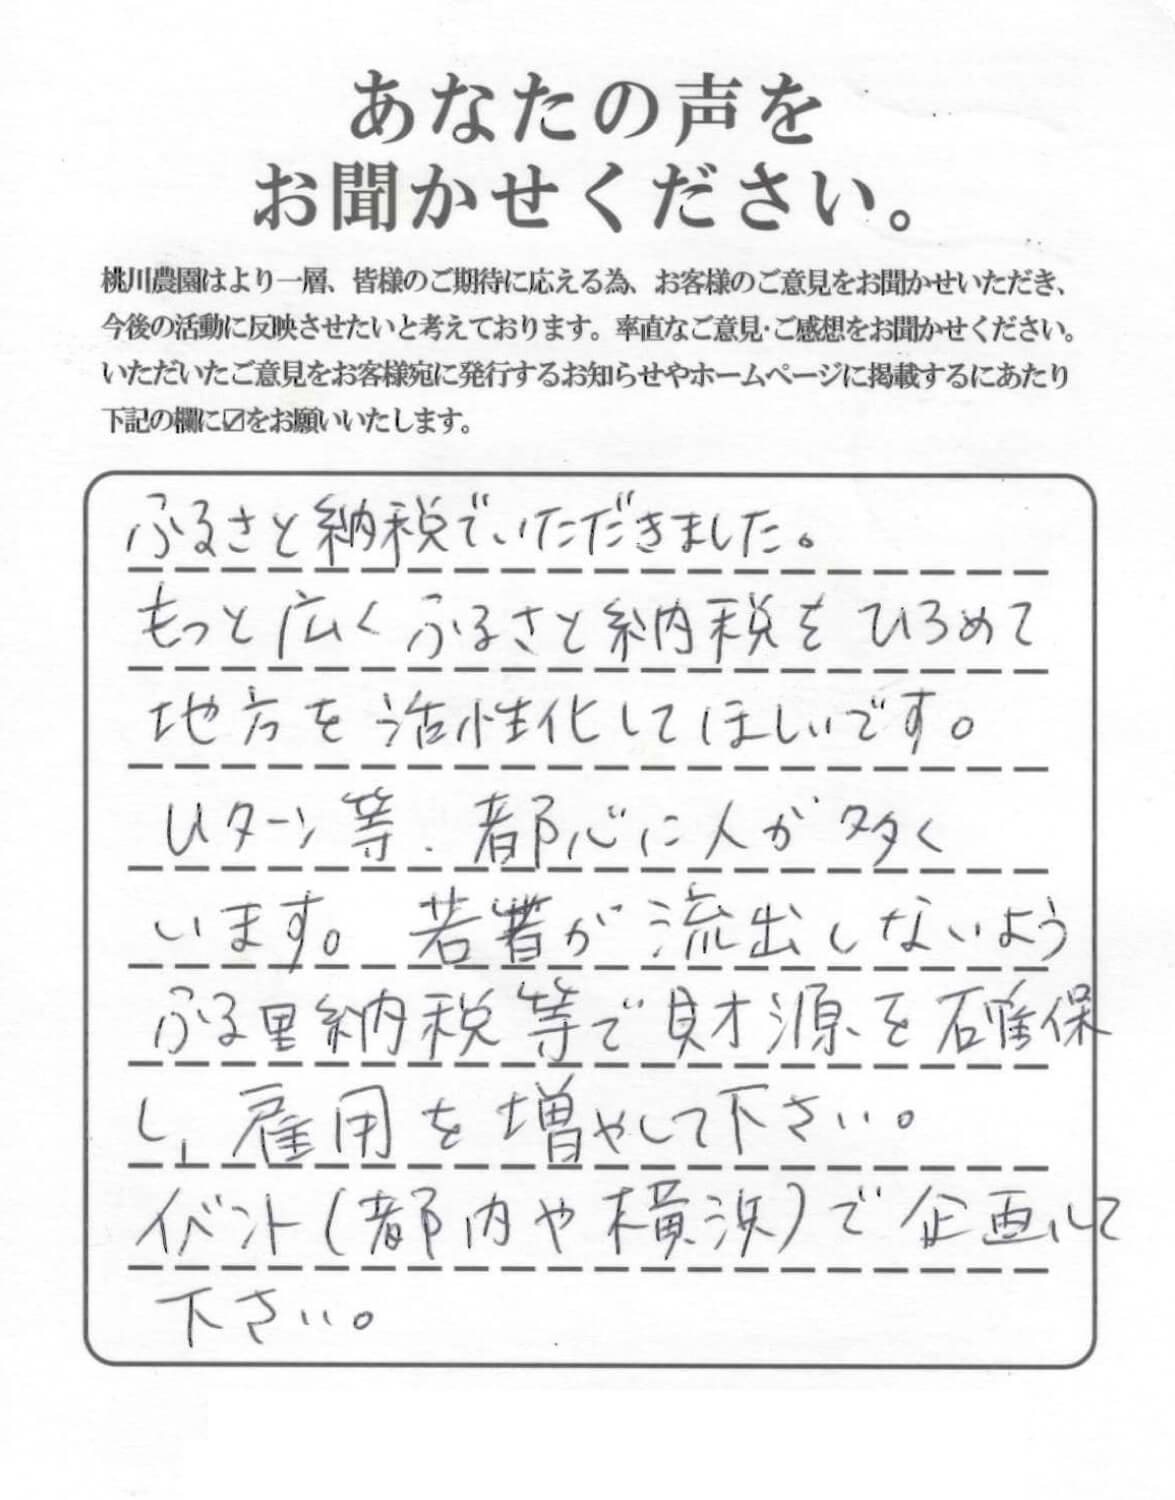 あなたの声を
お聞かせください。
桃川農園はより一層、皆様のご期待に応える為、お客様のご意見をお聞かせいただき、
今後の活動に反映させたいと考えております。率直なご意見・ご感想をお聞かせください。
いただいたご意見をお客様宛に発行するお知らせやホームページに掲載するにあたり
下記の欄に☑をお願いいたします。
ふるさと納税でいただきました。
もっと広くふるさと納税をひろめて
地方を活性化してほしいです。
Uターン等、都心に人が多く
います。若者が流出しないよう
ふる里納税等で財源を確保
し、雇用を増やして下さい。
イベント(都内や横浜)で企画して
下さい。